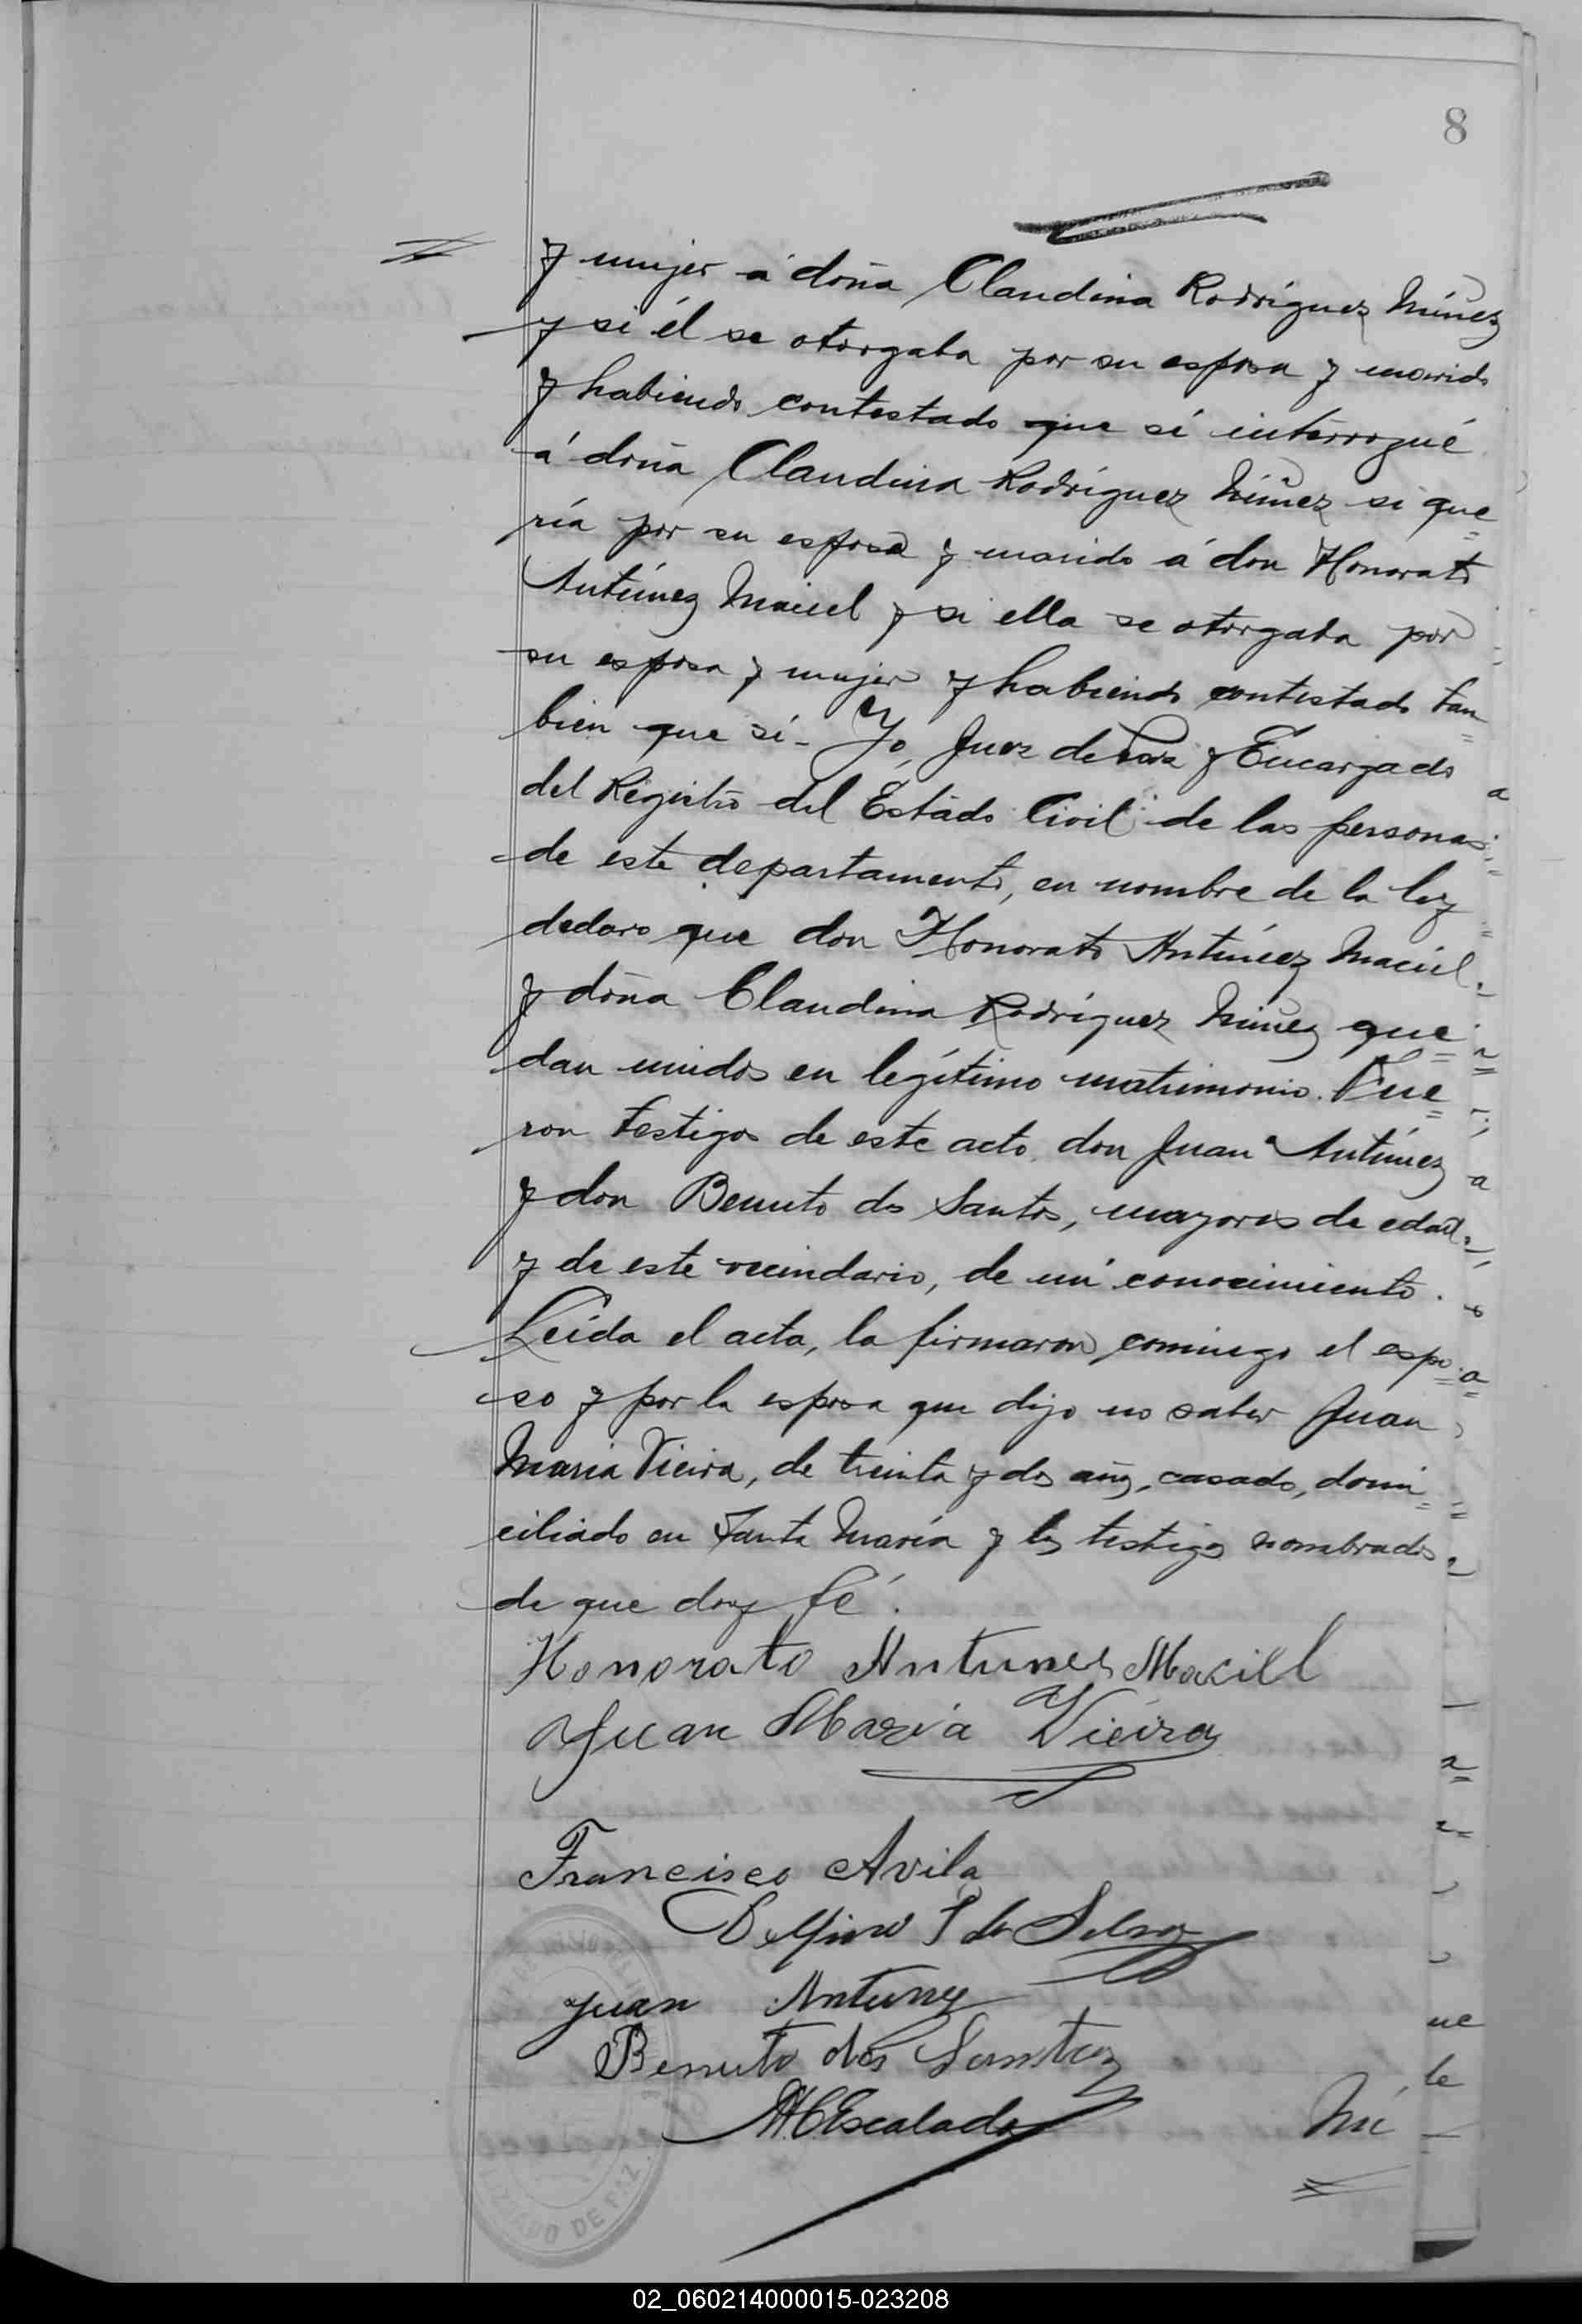 8
y mujer á doña Claudina Rodríguez Núñez
y si él se otorgaba por su esposa y marido
y habiendo contestado que sí interrogué
á doña Claudina Rodríguez Núñez si que=
ría por su esposo y marido á don Honorato
Antúnez Maciel y si ella se otorgaba por
su esposa y mujer y habiendo contestado tan=
bien que sí - Yo, Juez de Paz y Encargado
del Registro del Estado Civil de las personas
de este departamento, en nombre de la ley
declaro que don Honorato Antúnez Maciel
y doña Claudina Rodríguez Núñez que=
dan unidos en legítimo matrimonio. Fue=
ron testigos de este acto don Juan Antúnez
y don Benuto dos Santos, mayores de edad
y de este vecindario, de mi conocimiento.
Leída el acta, la firmaron conmigo el espo=
so y por la esposa que dijo no saber Juan
Maria Vieira, de treinta y dos años, casado, domi=
ciliado en Santa María y los testigos nombrados
de que doy fé.
Honorato Antunes Maciel
Juan Maria Vieira
Francisco Avila
Delfino S da Silva
Juan Antunez
Benuto dos Santos
Escalada
Nú
JUZGADO DE PAZ
02_060214000015-023208